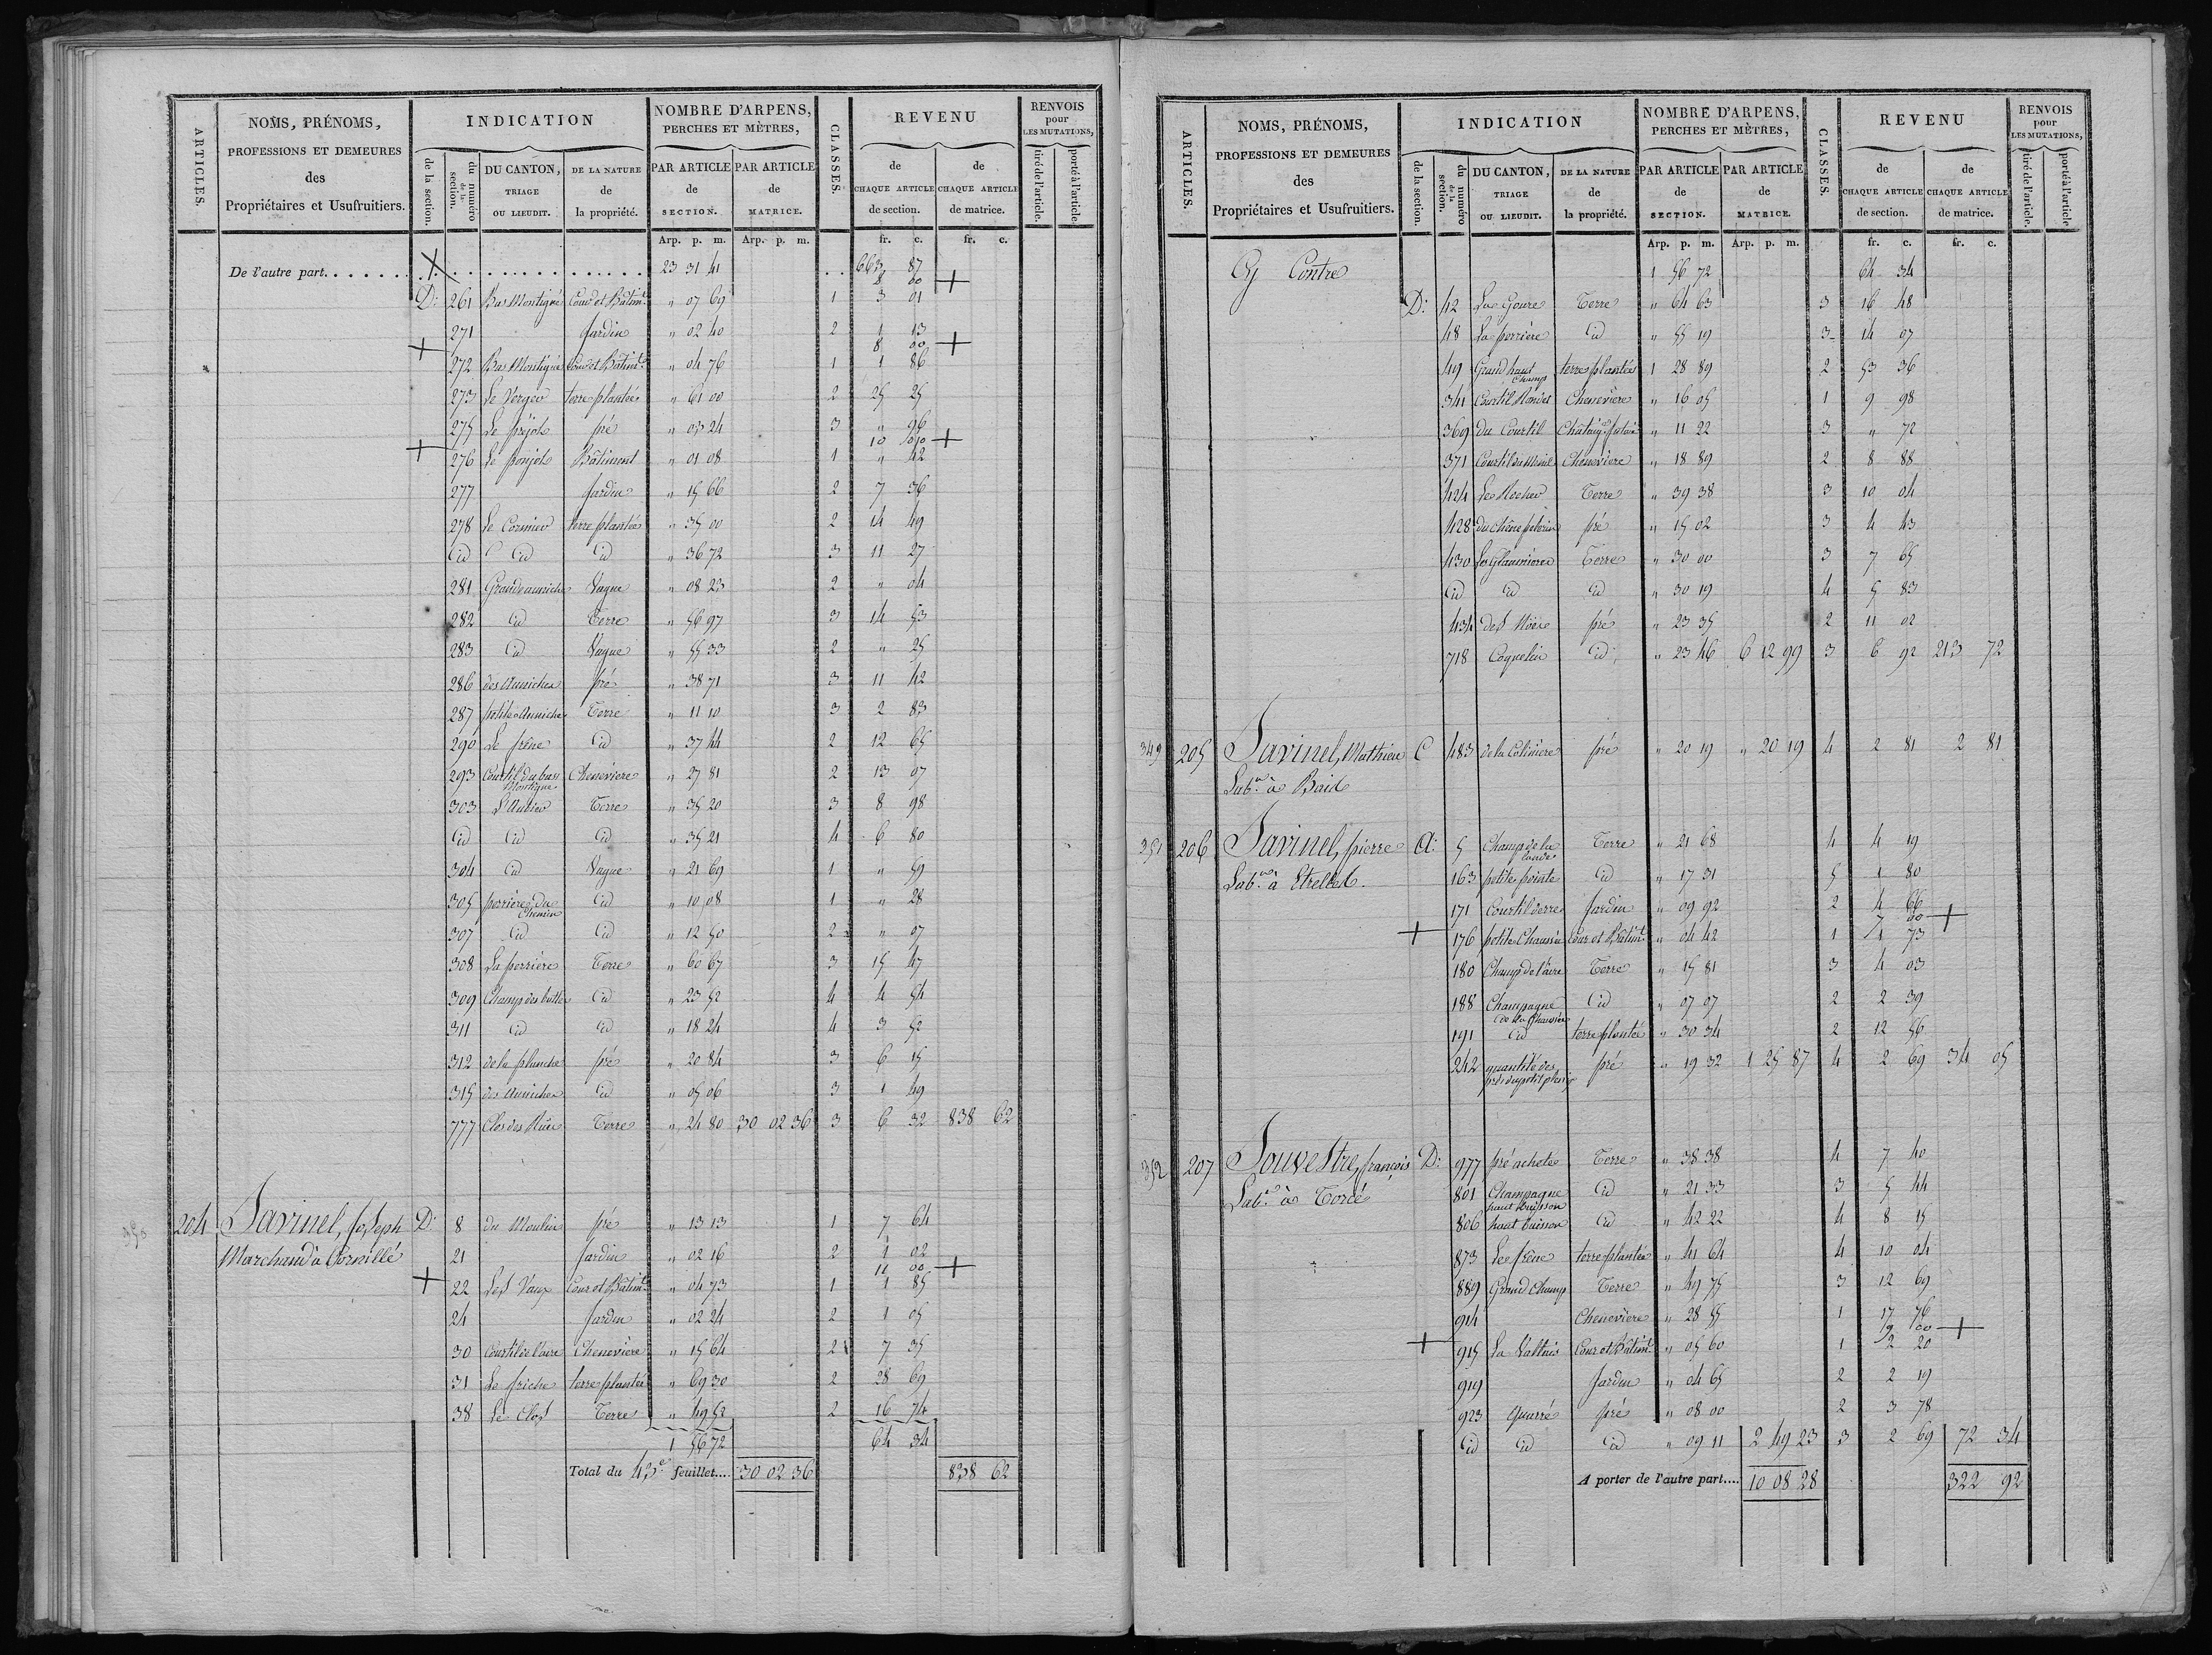 ARTICLES.
NOMS, PRÉNOMS,
PROFESSIONS ET DEMEURES
des
Propriétaires et Usufruitiers.
INDICATION
de la section.
du numéro de la section.
DU CANTON,
TRIAGE
OU LIEUDIT.
DE LA NATURE
de
la propriété.
NOMBRE D'ARPENS,
PERCHES ET MÈTRES,
PAR ARTICLE
de
SECTION.
PAR ARTICLE
de
MATRICE.
CLASSES.
REVENU
de
CHAQUE ARTICLE
de section.
de
CHAQUE ARTICLE
de matrice.
RENVOIS
pour
LES MUTATIONS,
tiré de l'article.
porté à l'article
Arp. p. m. Arp. p. m. fr. c. fr. c.
De l'autre part. . . . . . . 23 31 41 663 87
8 00
D: 261 Bas Montigné Cour et Bâtimt. " 07 69 1 3 01
271 Jardin " 02 40 2 1 13
8 00
272 Bas Montigné Cour et Bâtimt. " 04 76 1 1 86
273 Le Verger terre plantée " 61 00 2 25 25
275 Le préjot pré " 03 24 3 " 96
10 00
276 Le Bâtiment " 01 08 1 " 42
277 Jardin " 15 66 2 7 36
278 Le Cormier terre plantée " 35 00 2 14 49
id id id " 36 72 3 11 27
281 Grande auniche Vague " 08 23 2 " 04
282 id Terre " 56 97 3 14 53
283 id Vague " 55 33 2 " 25
286 des Auniches pré " 38 71 3 11 42
287 petite Auniche Terre " 11 10 3 2 83
290 Le frêne id " 37 44 2 12 65
293 Courtil du bas Montigné Chenevière " 27 81 2 13 97
303 Terre " 35 20 3 8 98
id id id " 35 21 4 6 80
304 id Vague " 21 69 1 " 59
305 perrière du Chemin id " 10 08 1 " 28
307 id id " 12 50 2 " 07
308 La perrière Terre " 60 67 3 15 47
309 Champ des buttes id " 23 52 4 4 54
311 id id " 18 24 4 3 52
312 de la planche pré " 20 84 3 6 15
315 des Auniches id " 05 06 3 1 49
777 Clos des Terre " 24 80 30 02 36 3 6 32 838 62
350 204 Savinel, Joseph D: 8 du Moulin pré " 13 13 1 7 64
Marchand à Cornillé 21 Jardin " 02 16 2 1 02
11 00
22 Les Vaux Cour et Bâtimt. " 04 73 1 1 85
24 Jardin " 02 24 2 1 05
30 Courtil de l'aire Chenevière " 15 64 2 7 35
31 Le friche terre plantée " 69 30 2 28 69
38 Le Clos Terre " 49 52 2 16 74
1 56 72 64 34
Total du 43e. feuillet.... 30 02 36 838 62
ARTICLES.
NOMS, PRÉNOMS,
PROFESSIONS ET DEMEURES
des
Propriétaires et Usufruitiers.
INDICATION
de la section.
du numéro de la section.
DU CANTON,
TRIAGE
OU LIEUDIT.
DE LA NATURE
de
la propriété.
NOMBRE D'ARPENS,
PERCHES ET MÈTRES,
PAR ARTICLE
de
SECTION.
PAR ARTICLE
de
MATRICE.
CLASSES.
REVENU
de
CHAQUE ARTICLE
de section.
de
CHAQUE ARTICLE
de matrice.
RENVOIS
pour
LES MUTATIONS,
tiré de l'article.
porté à l'article
Arp. p. m. Arp. p. m. fr. c. fr. c.
Cy Contre 1 56 72 64 34
D: 42 La Goure Terre " 64 63 3 16 48
48 La perrière id " 55 19 3 14 07
49 Grand haut Champ terre plantée 1 28 89 2 53 36
341 Courtil Chenevière " 16 05 1 9 98
369 du Courtil " 11 22 3 " 72
371 Courtil du Chenevière " 18 89 2 8 88
424 Le Rocher Terre " 39 38 3 10 04
428 du Chêne pré " 15 02 3 4 43
430 Terre " 30 00 3 7 65
id id id " 30 19 4 5 83
434 des Noës pré " 23 35 2 11 02
718 Coquelin id " 23 46 6 12 99 3 6 92 213 72
349 205 Savinel, Mathieu C 483 de la Colinière pré " 20 19 " 20 19 4 2 81 2 81
Labr. à Bais
351 206 Savinel, pierre A: 5 Champ de la lande Terre " 21 68 4 4 19
Labr. à Etrelles. 163 petite pointe id " 17 31 5 1 80
171 Courtil Jardin " 09 92 2 4 66
7 00
176 petite Chaussée Cour et Bâtimt. " 04 42 1 1 73
180 Champ de l'aire Terre " 15 81 3 4 03
188 Champagne de la Chaussée id " 07 07 2 2 39
191 id terre plantée " 30 34 2 12 56
242 quantité des prés du petit pré " 19 32 1 25 87 4 2 69 34 05
352 207 Souvestre, françois D: 977 pré acheté Terre " 38 38 4 7 40
Labr. à Torcé 801 Champagne haut buisson id " 21 33 3 5 44
806 haut buisson id " 42 22 4 8 15
873 Le frêne terre plantée " 41 64 4 10 04
889 Grand Champ Terre " 49 75 3 12 69
914 Chenevière " 28 55 1 17 76
9 00
915 La Cour et Bâtimt. " 05 60 1 2 20
919 Jardin " 04 65 2 2 19
923 Quarré pré " 08 00 2 3 78
id id id " 09 11 2 49 23 3 2 69 72 34
A porter de l'autre part.... 10 08 28 322 92